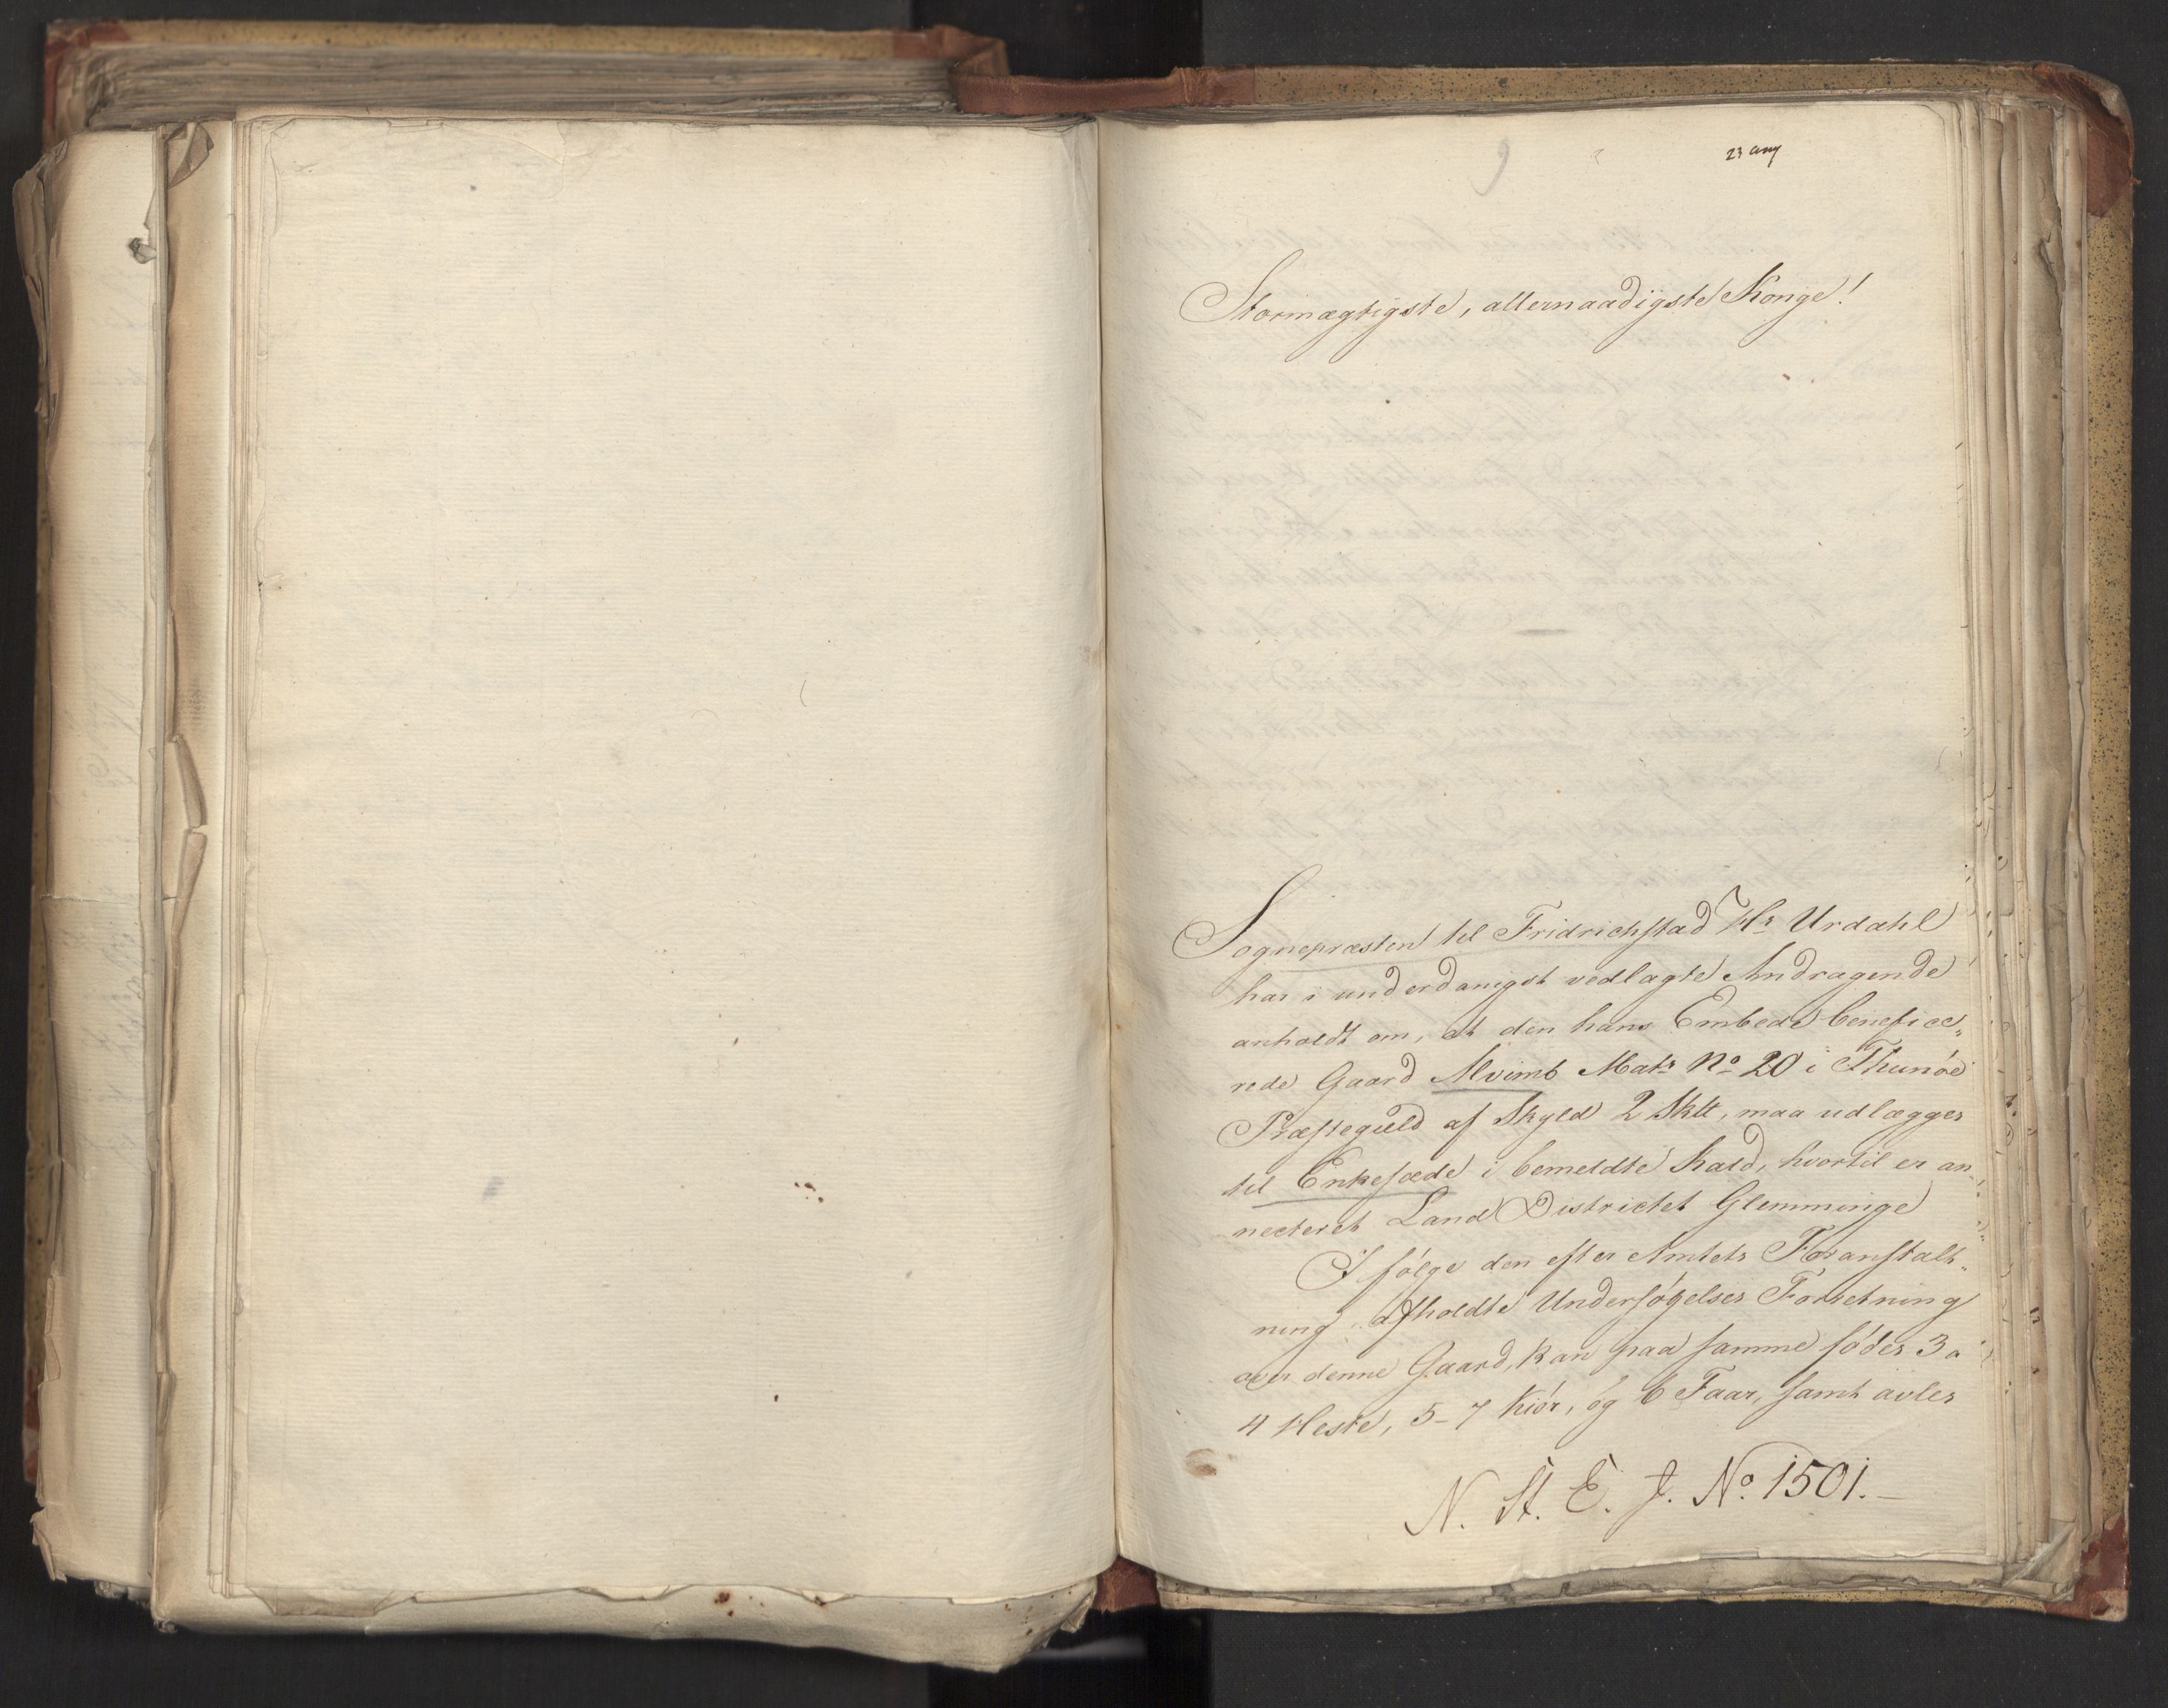 23 aug
Stormægtigste, allernaadigste Konge!
Sognepræsten til Fridrichstad Hr Urdahl
har i underdanigst vedlagte Andragende
anholdt om, at den hans Embede benefice„
rede Gaard Alvimb Matr No 20 i Thunöe
Præstegield af Skyld 2 Sklt, maa udlægges
til Enkesæde i bemeldte Kald, hvortil er an„
necteret Land Districtet Glemminge
I fölge den efter Amtets Foranstalt„
ning afholdte Undersögelses Forretning
over denne Gaard, kan paa samme födes 3 a
4 Heste, 5-7 Kiör, og 6 Faar, samt avles
N. St. E. J. No. 1501.